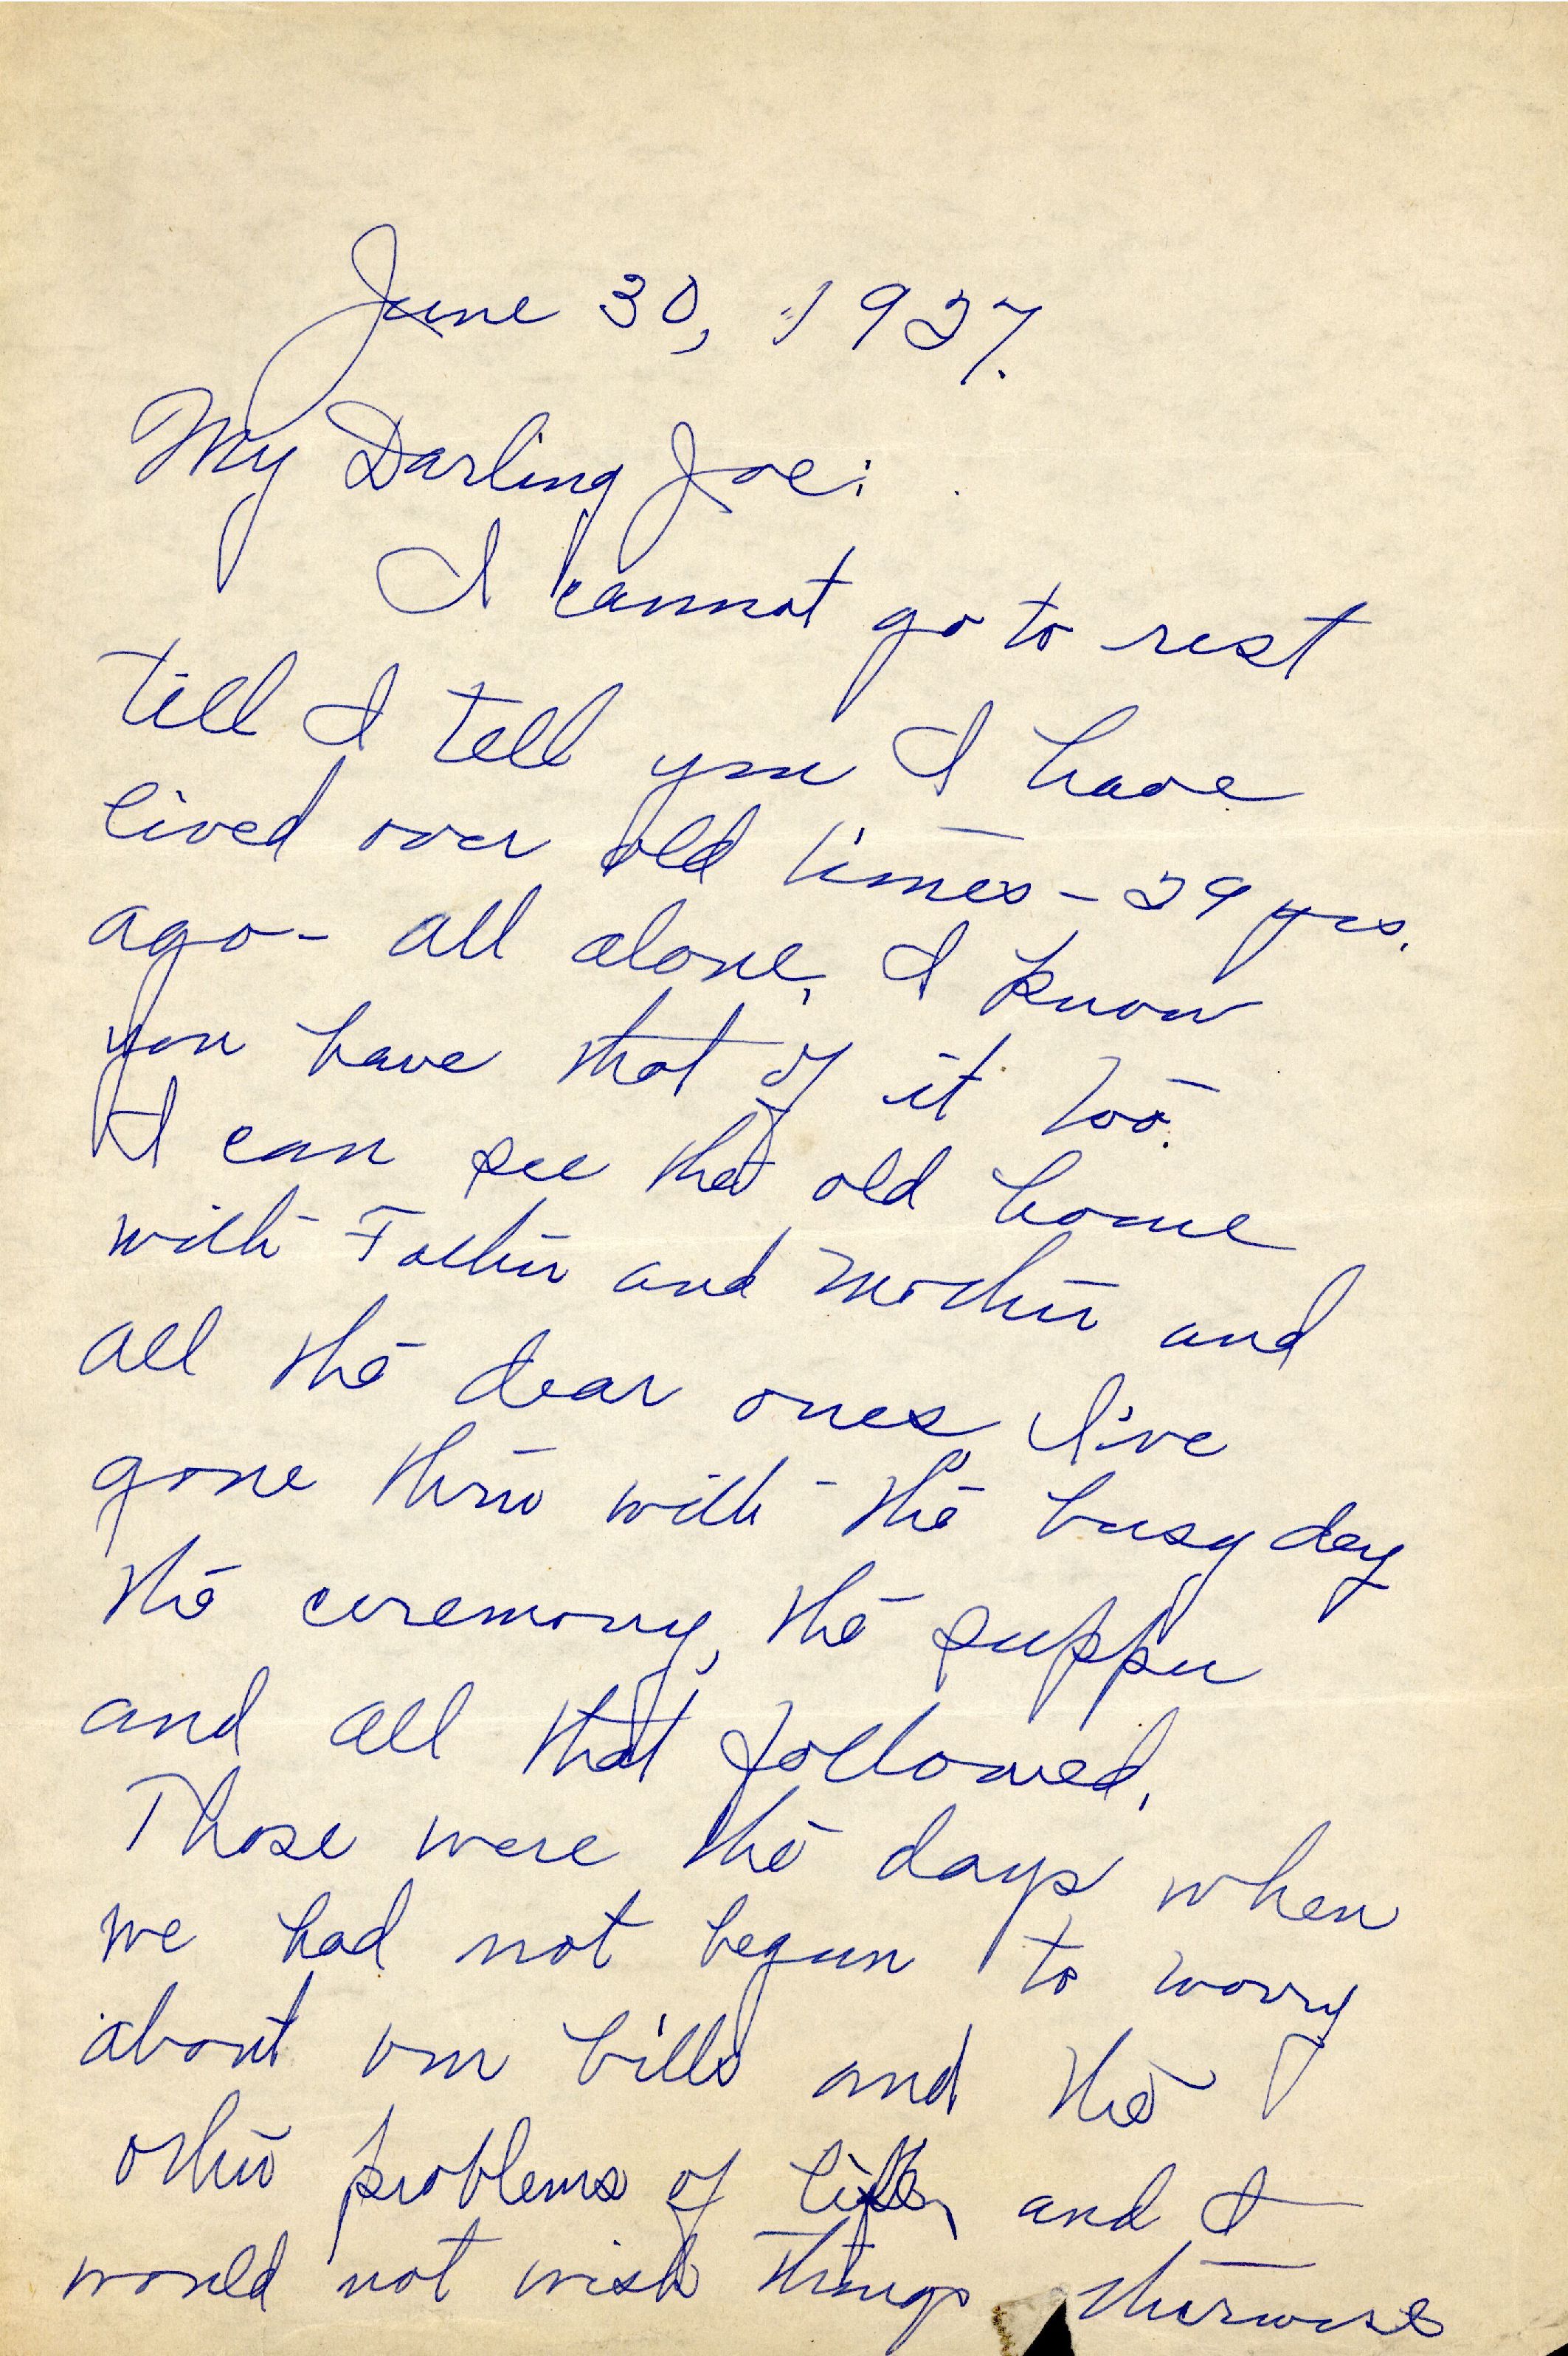 June 30, 1927.
My Darling Joe:
I cannot go to rest
till I tell you I have
lived over old times - 29 yrs.
ago - all alone, I know
you have thot of it too.
I can see the old home
with Father and Mother and
all the dear ones, I've
gone thru with the busy day
the ceremony, the supper
and all that followed.
Those were the days when
we had not begun to worry
about our bills and the
other problems of life, and I
would not wish things otherwise